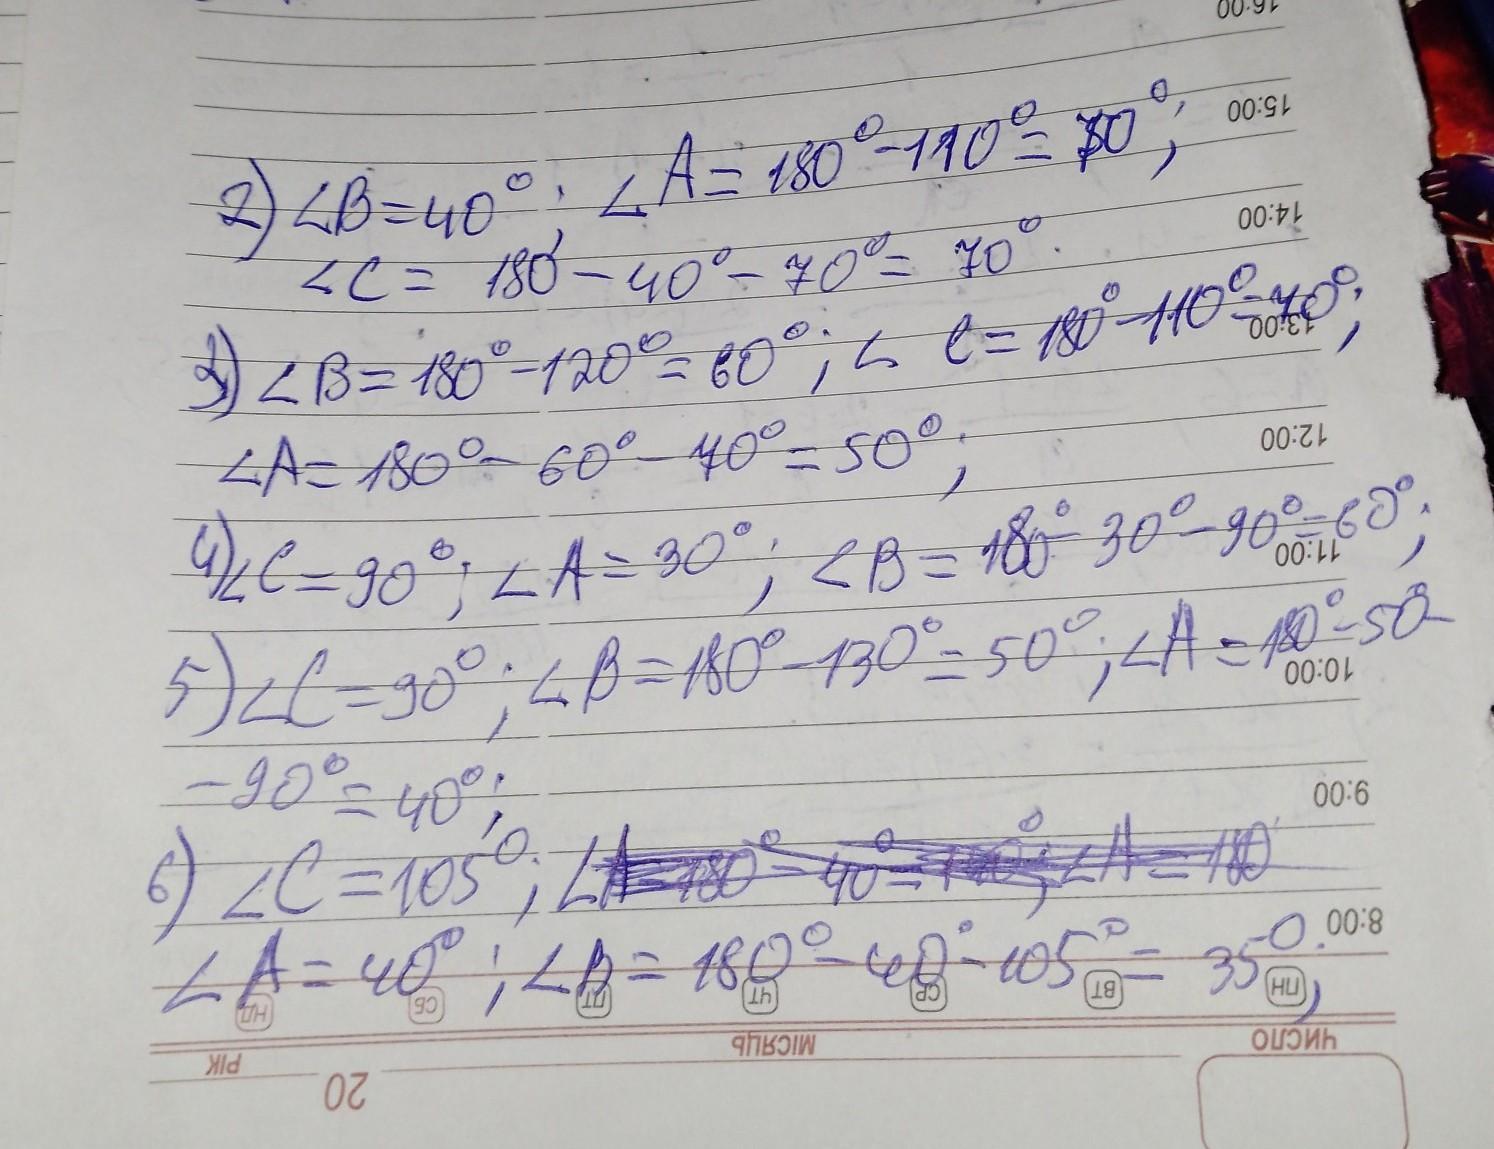 16:00
15:00
2) ∠B=40°; ∠A=180°-110°=70°;
14:00
∠C= 180°-40°-70°= 70°.
3) ∠B=180°-120°=60°; ∠C=180°-110°=70°;
13:00
∠A=180°-60°-70°=50°;
12:00
4) ∠C=90°; ∠A=30°; ∠B=180°-30°-90°=60°;
11:00
5) ∠C=90°; ∠B=180°-130°=50°; ∠A=180°-50°-
10:00
-90°=40°;
9:00
6) ∠C=105°;
8:00
∠A=40°; ∠B=180°-40°-105°=35°;
НД СБ ПТ ЧТ СР ВТ ПН
РІК МІСЯЦЬ ЧИСЛО
20